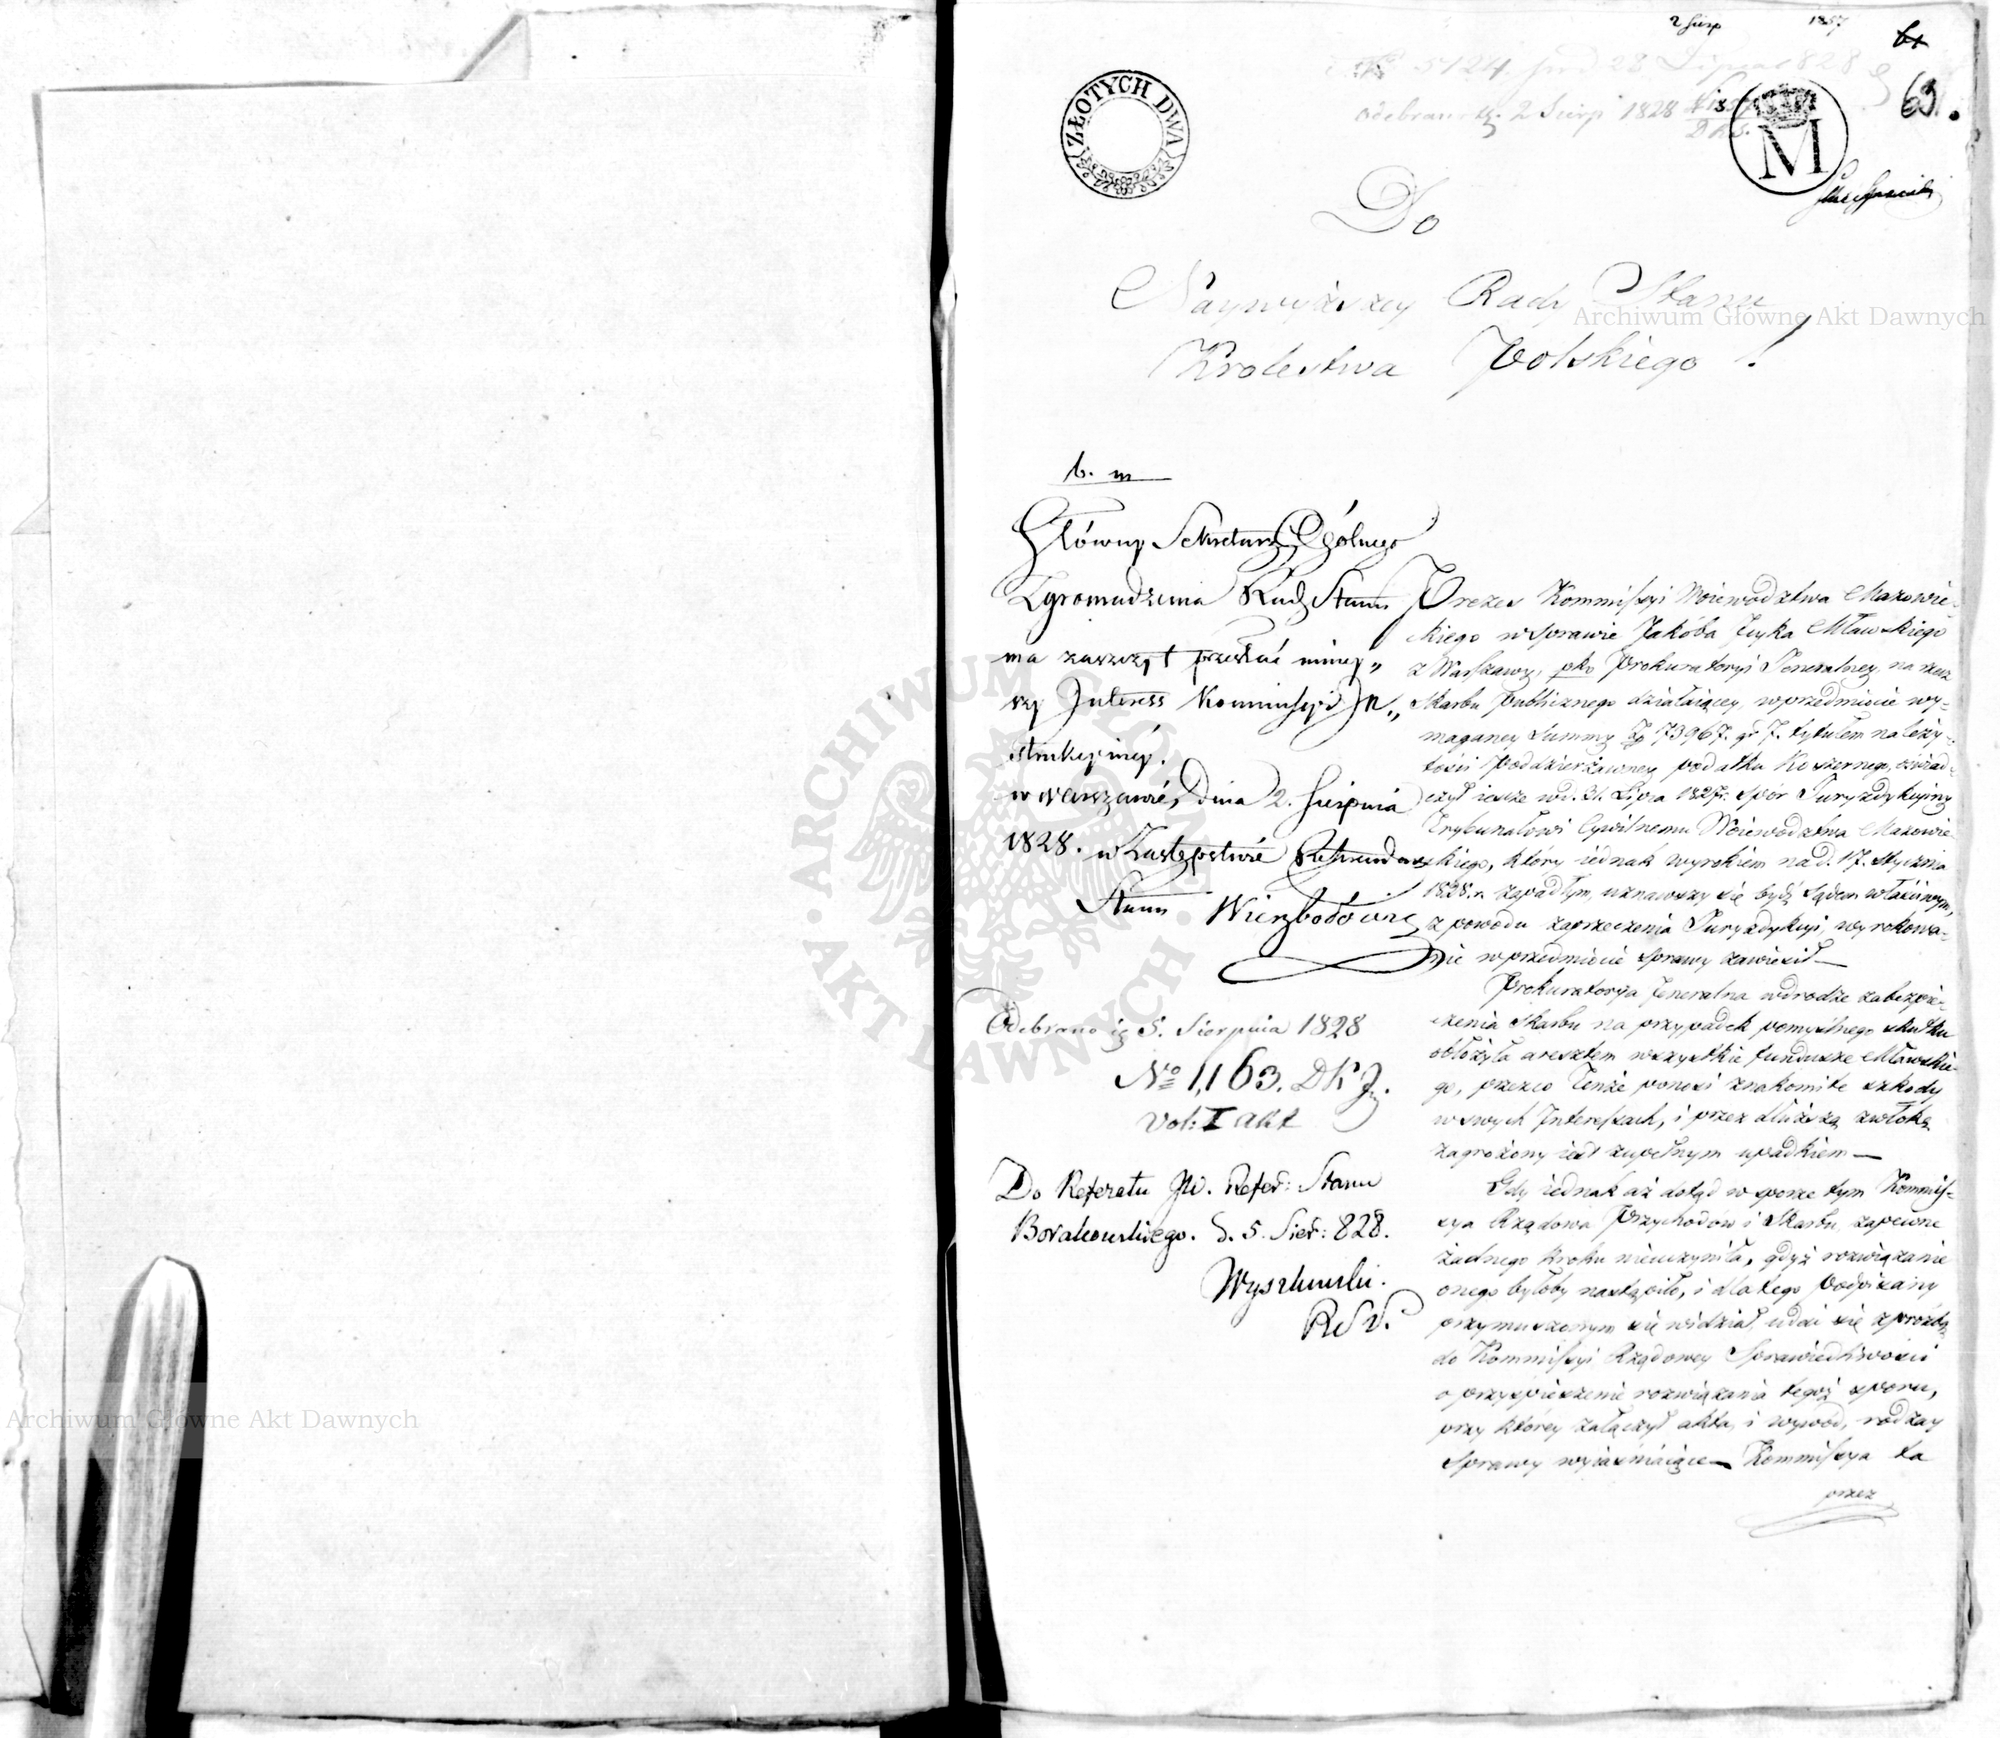 2 Sierp 1857
61
№ 5124 prod 28 Lipca 828
63.
odebrano d. 2 Sierp 1828
ZŁOTYCH DWA
M
Do
Naywyższey Rady Stanu
Krolestwa Polskiego!
Archiwum Główne Akt Dawnych
b. m
Główny Sekretarz Ogólnego
Zgromadzenia Rady Stanu
ma zaszczyt przesłać niniey„
szy Interess Kommissyi In„
strukcyiney.
w Warszawie, Dnia 2. Sierpnia
1828. w Zastępstwie Referendarza
Stanu Wierzbołowicz
Odebrano d. 5. Sierpnia 1828
№ 1,163. DKJ.
Vol: I Akt
Do Referatu JW. Refer: Stanu
Borakowskiego. d. 5. Sier: 828.
RSt.
Prezes Kommissyi Woiewodztwa Mazowie-
ckiego w sprawie Jakóba Icyka Mławskiego
z Warszawy, pko Prokuratoryi Jeneralney na rzecz
Skarbu Publicznego działaiącey, w przedmiocie wy-
maganey Summy Zp 73967. gr 7. tytułem należy-
tości Poddzierżawney podatku Koszernego, oświad-
czył ieszcze w d. 31. Lipca 1827r. spór Juryzdykcyiny
Trybunałowi Cywilnemu Woiewodztwa Mazowie-
ckiego, który iednak wyrokiem na d. 17. Stycznia
1828. r. zapadłym, uznawszy się bydź Sądem właściwym,
z powodu zaprzeczenia Juryzdykcyi, wyrokowa-
nie w przedmiocie sprawy zawiesił—
Prokuratorya Jeneralna w drodze zabezpie-
czenia Skarbu na przypadek pomyślnego skutku
obłożyła aresztem wszystkie fundusze Mławskie-
go, przezco Tenże ponosi znakomite szkody
w swych Interessach, i przez dłuższą zwłokę
zagrożony iest zupełnym upadkiem—
Gdy iednak aż dotąd w sporze tym Kommis-
sya Rządowa Przychodów i Skarbu zapewne
żadnego kroku nieuczyniła, gdyż rozwiązanie
onego byłoby nastąpiło, i dlatego Podpisany
przymuszonym się widział udać się z prośbą
do Kommissyi Rządowey Sprawiedliwości
o przyspieszenie rozwiązania tegoż sporu,
przy którey załączył akta i wywód, rodzay
Sprawy wyiaśniaiące— Kommissya ta
przez
ARCHIWUM GŁÓWNE AKT DAWNYCH
Archiwum Główne Akt Dawnych